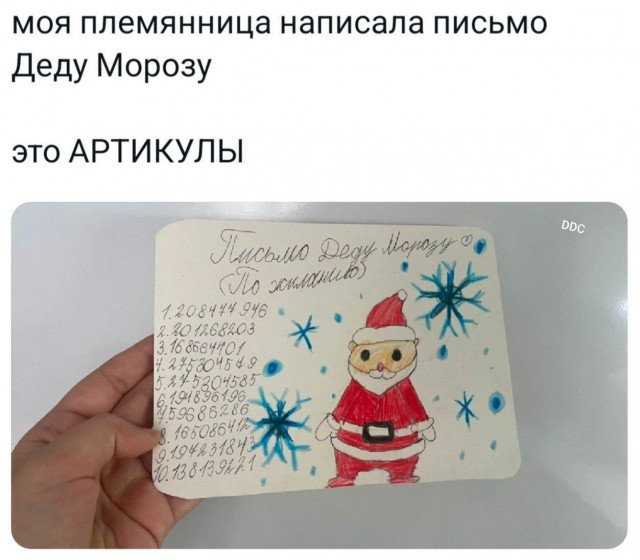 моя племянница написала письмо
Деду Морозу
это АРТИКУЛЫ
DDC
Письмо Деду Морозу
(По желанию)
1.208477946
2.201268203
3.168684701
4.275304549
5.245204585
6.191896196
7.59686286
8.165086412
9.194231843
10.138139221